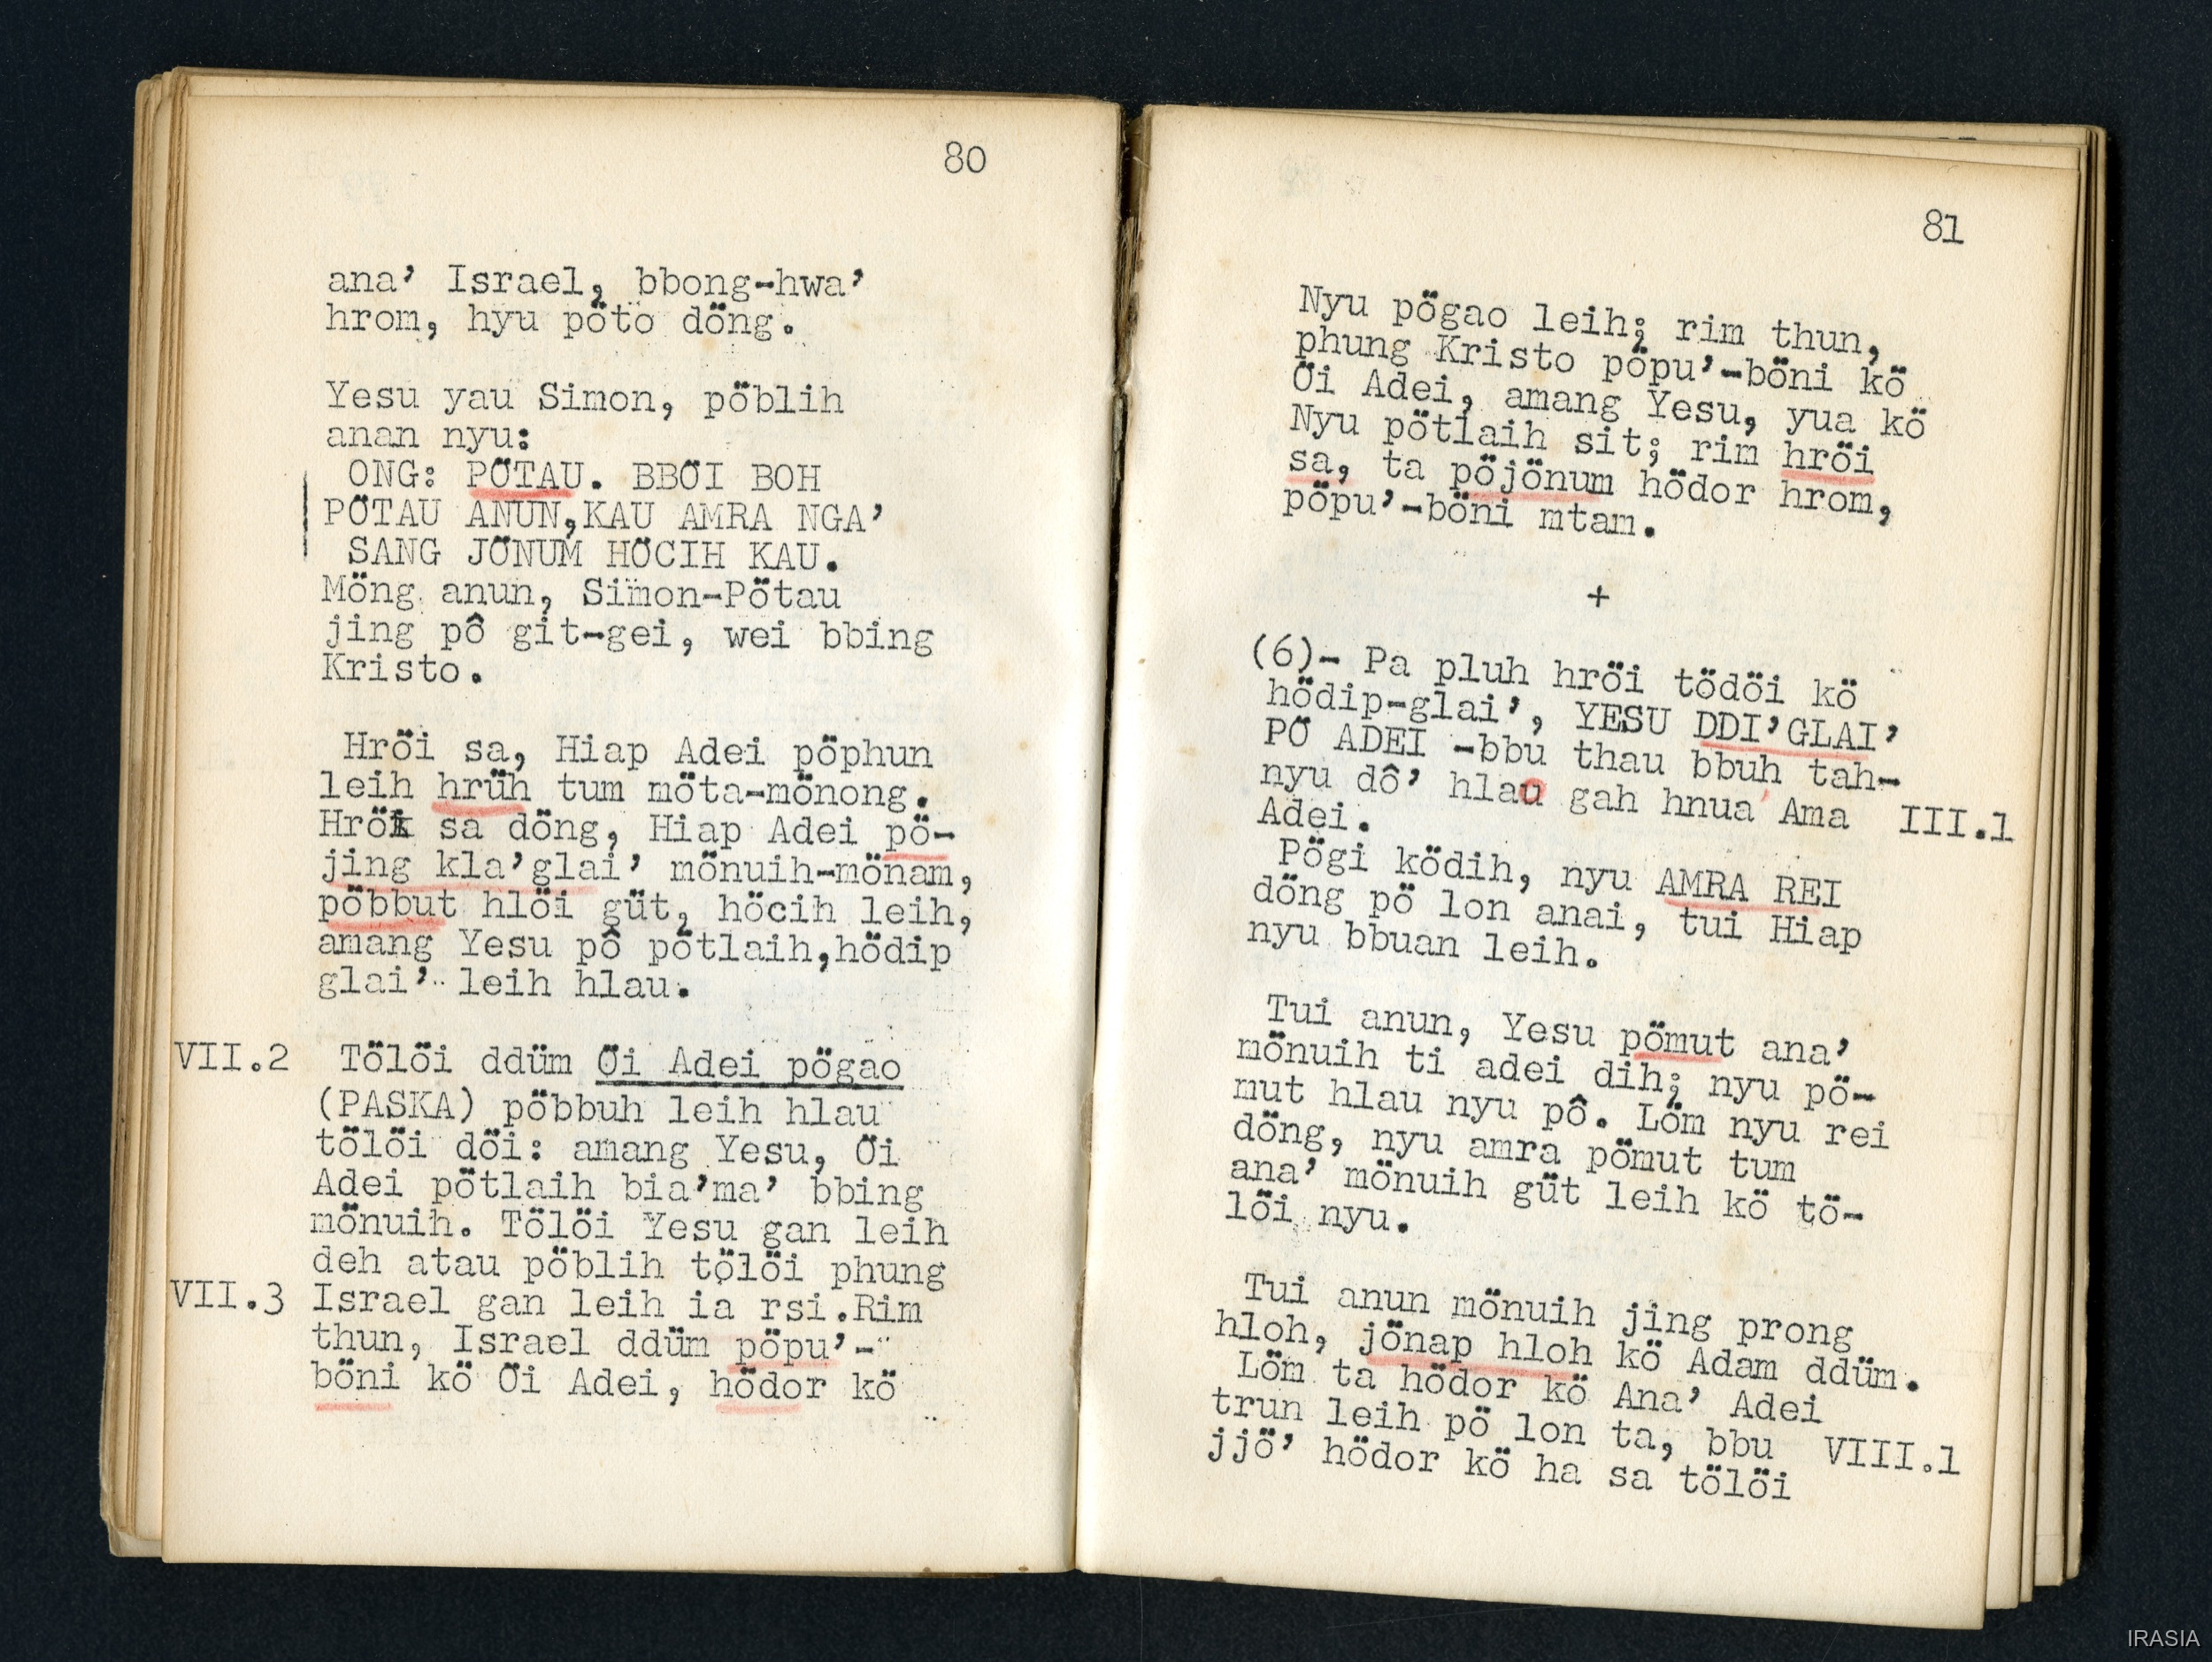 80
ana’ Israel, bbong-hwa’
hrom, hyu pöto döng.
Yesu yau Simon, pöblih
anan nyu:
ONG: PÖTAU. BBÖI BOH
PÖTAU ANUN,KAU AMRA NGA’
SANG JÖNUM HÖCIH KAU.
Möng anun, Simon-Pötau
jing pô git-gei, wei bbing
Kristo.
Hröi sa, Hiap Adei pöphun
leih hrüh tum möta-mönong.
Hröi sa döng, Hiap Adei pö-
jing kla’glai’ mönuih-mönam,
pöbbut hlöi güt, höcih leih,
amang Yesu pô pötlaih,hödip
glai’ leih hlau.
VII.2 Tölöi ddüm Öi Adei pögao
(PASKA) pöbbuh leih hlau
tölöi döi: amang Yesu, Öi
Adei pötlaih bia’ma’ bbing
mönuih. Tölöi Yesu gan leih
deh atau pöblih tölöi phung
VII.3 Israel gan leih ia rsi.Rim
thun, Israel ddüm pöpu’-
böni kö Öi Adei, hödor kö
81
Nyu pögao leih; rim thun,
phung Kristo pöpu’-böni kö
Öi Adei, amang Yesu, yua kö
Nyu pötlaih sit; rim hröi
sa, ta pöjönum hödor hrom,
pöpu’-böni mtam.
+
(6)- Pa pluh hröi tödöi kö
hödip-glai’, YESU DDI’GLAI’
PÖ ADEI -bbu thau bbuh tah-
nyu dô’ hlau gah hnua Ama III.1
Adei.
Pögi ködih, nyu AMRA REI
döng pö lon anai, tui Hiap
nyu bbuan leih.
Tui anun, Yesu pömut ana’
mönuih ti adei dih; nyu pö-
mut hlau nyu pô. Löm nyu rei
döng, nyu amra pömut tum
ana’ mönuih güt leih kö tö-
löi nyu.
Tui anun mönuih jing prong
hloh, jönap hloh kö Adam ddüm.
Löm ta hödor kö Ana’ Adei
trun leih pö lon ta, bbu VIII.1
jjö’ hödor kö ha sa tölöi
IRASIA